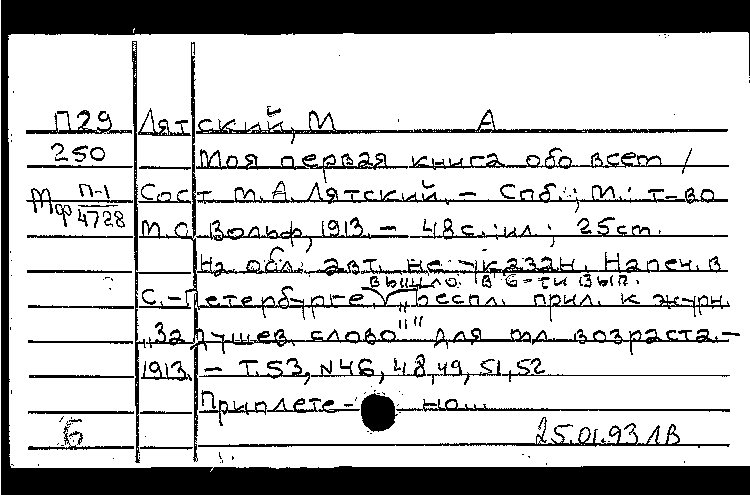 П29 Лятский, М А
250 Моя первая книга обо всем /
Мф П-1/4728 Сост М.А.Лятский. – Спб.; М.: т-во
М.О. Вольф, 1913. – 48с.:ил.; 25см.
На обл. авт. не указан. Напеч. в
вышло в 6-ти вып.
С.-Петербурге. „Беспл. прил. к журн.
„Задушев. слово"" для мл. возраста. –
1913. – Т.53, №46, 48, 49, 51, 52
Приплете- но...
6 25.01.93 ЛВ